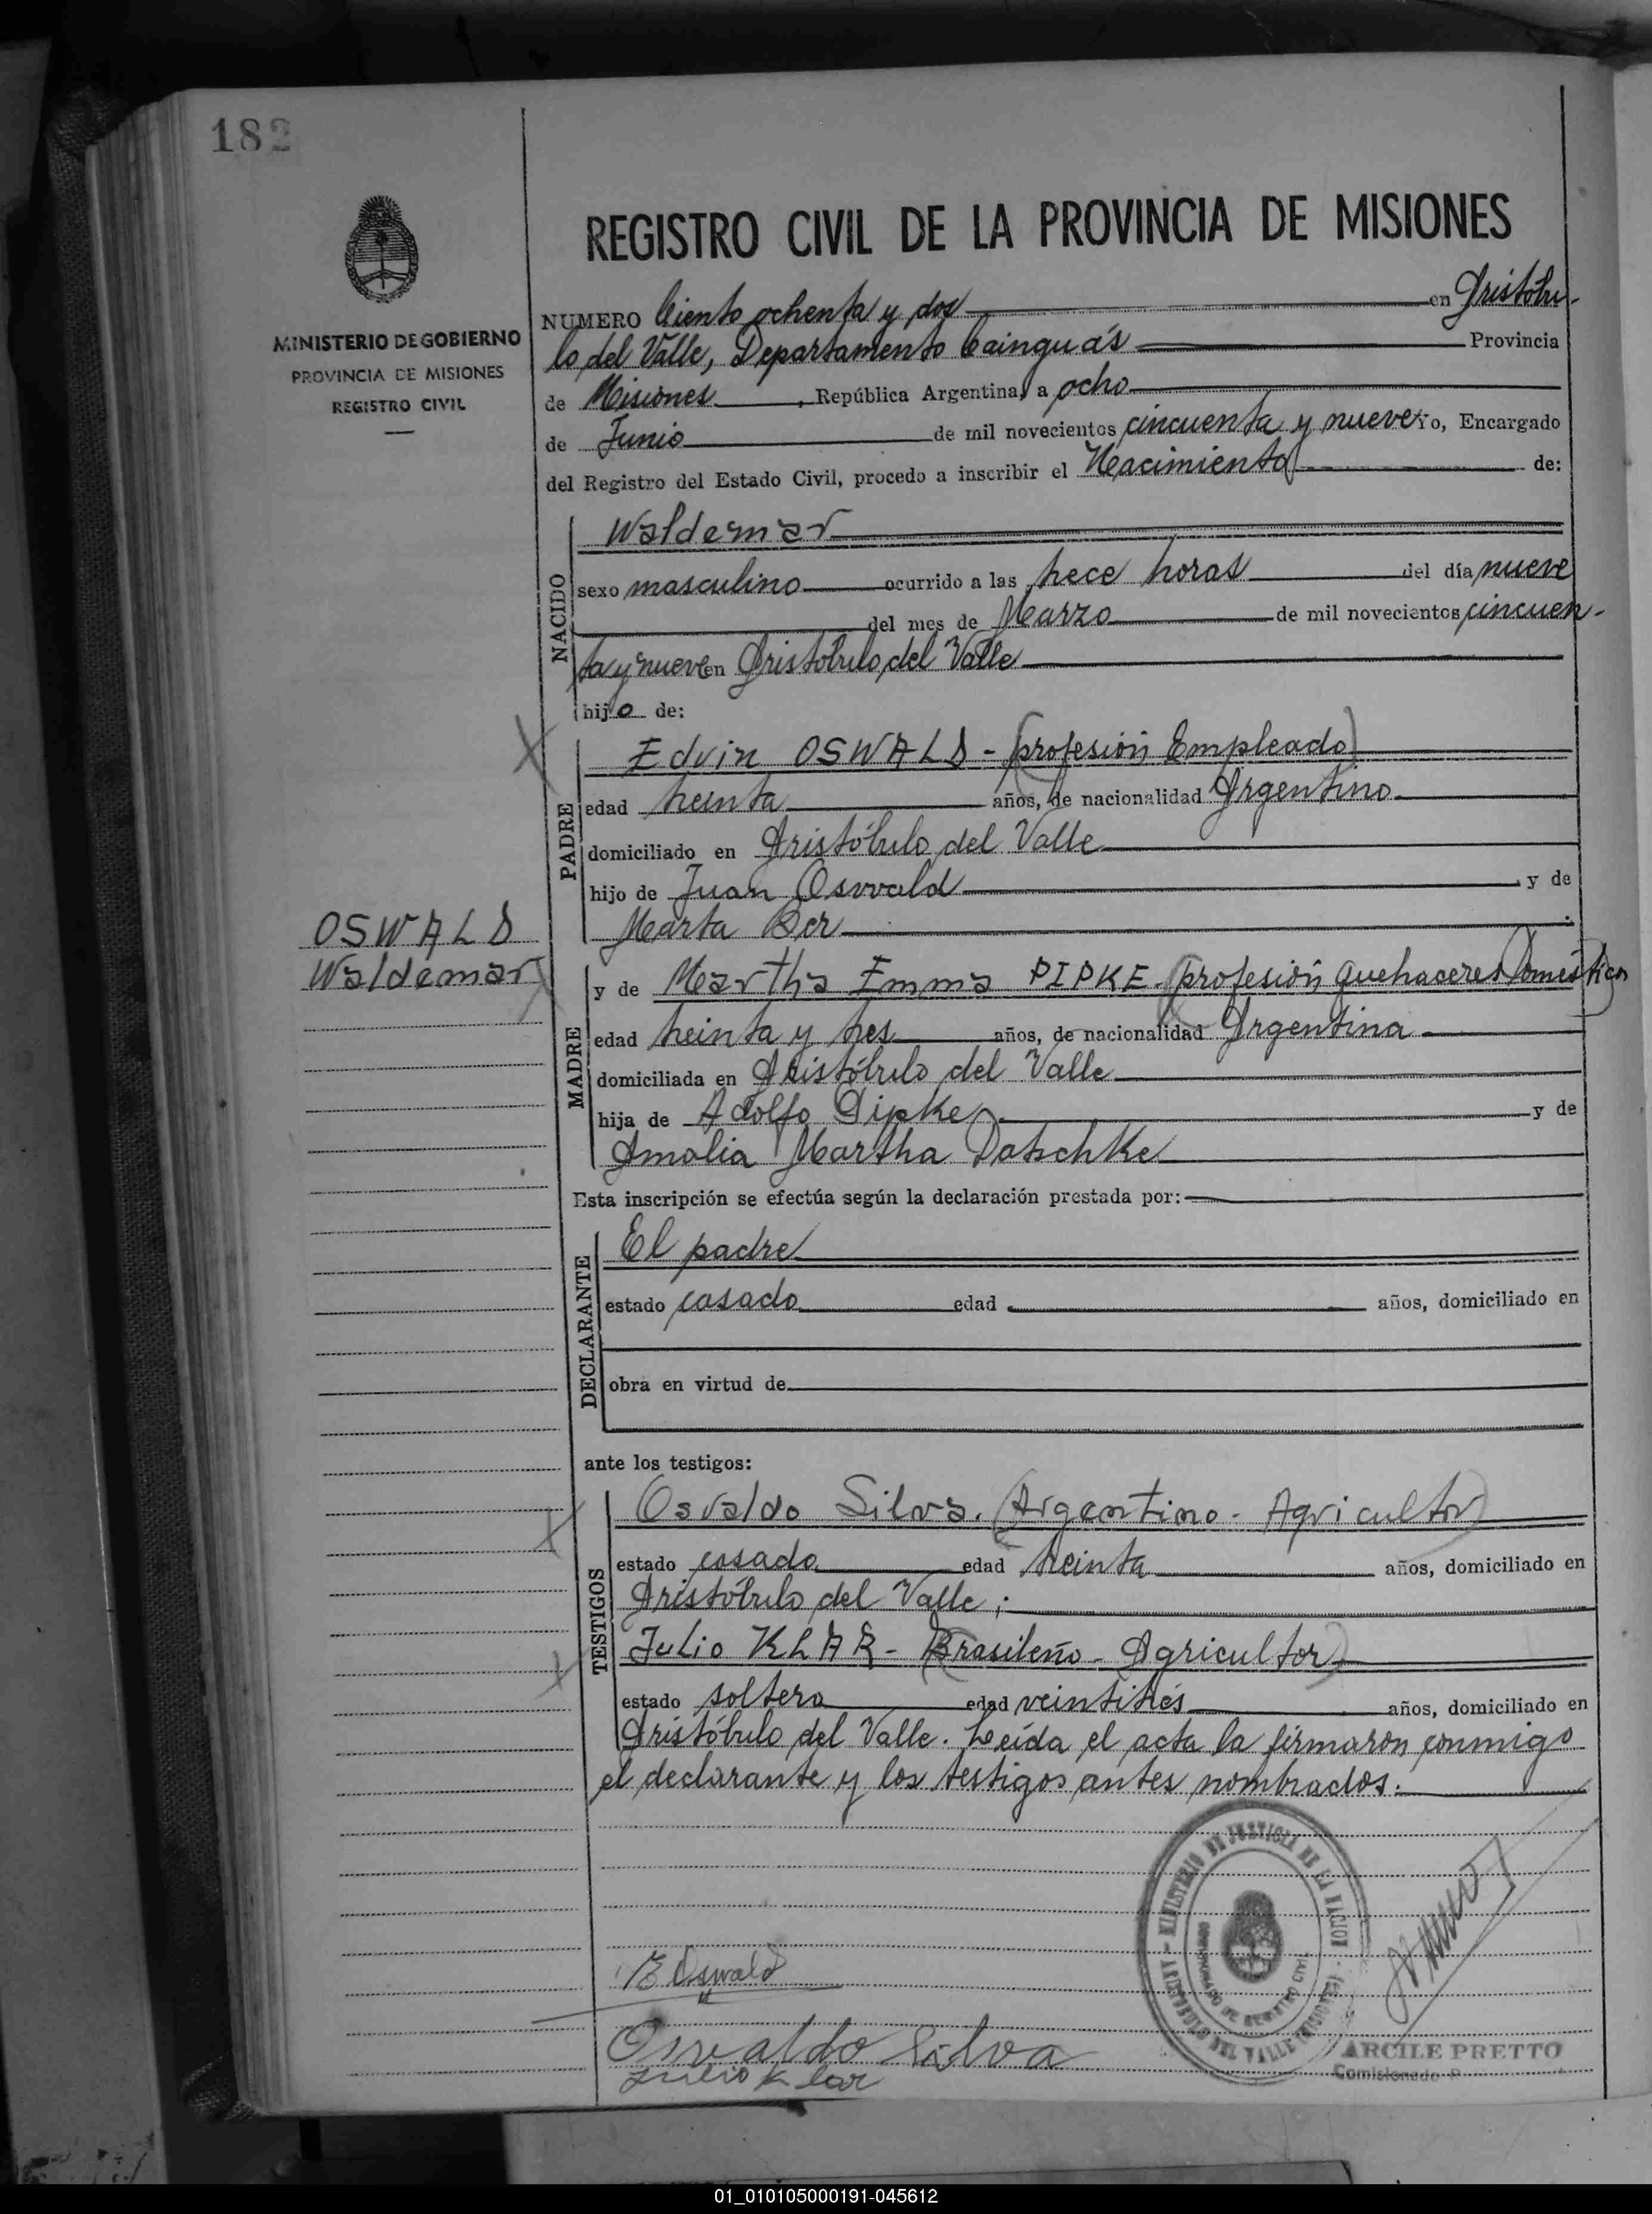 182
MINISTERIO DE GOBIERNO
PROVINCIA DE MISIONES
REGISTRO CIVIL
REGISTRO CIVIL DE LA PROVINCIA DE MISIONES
NUMERO Ciento ochenta y dos en Aristóbu-
lo del Valle, Departamento Cainguás Provincia
de Misiones, República Argentina, a ocho
de Junio de mil novecientos cincuenta y nueve yo, Encargado
del Registro del Estado Civil, procedo a inscribir el Nacimiento de:
NACIDO
Waldemar
sexo masculino ocurrido a las trece horas del día nueve
del mes de Marzo de mil novecientos cincuen-
ta y nueve en Aristóbulo del Valle
hijo de:
PADRE
Edvin OSWALD - (profesión Empleado)
edad treinta años, de nacionalidad Argentino
domiciliado en Aristóbulo del Valle
hijo de Juan Oswald y de
Marta Ber
OSWALD
Waldemar
MADRE
y de Martha Emma PIPKE. (profesión Quehaceres Domésticos)
edad treinta y tres años, de nacionalidad Argentina
domiciliada en Aristóbulo del Valle
hija de Adolfo Pipke y de
Amalia Martha Datschke
Esta inscripción se efectúa según la declaración prestada por:
DECLARANTE
El padre
estado casado edad años, domiciliado en
obra en virtud de
ante los testigos:
TESTIGOS
Osvaldo Silva. (Argentino - Agricultor)
estado casado edad treinta años, domiciliado en
Aristóbulo del Valle;
Julio KLAR - (Brasileño - Agricultor)
estado soltero edad veintitrés años, domiciliado en
Aristóbulo del Valle. Leída el acta la firmaron conmigo
el declarante y los testigos antes nombrados.
MINISTERIO DE JUSTICIA DE LA NACION
ARISTOBULO DEL VALLE (MISIONES)
E Oswald
Osvaldo Silva
Julio Klar
ARCILE PRETTO
Comisionado
01_010105000191-045612